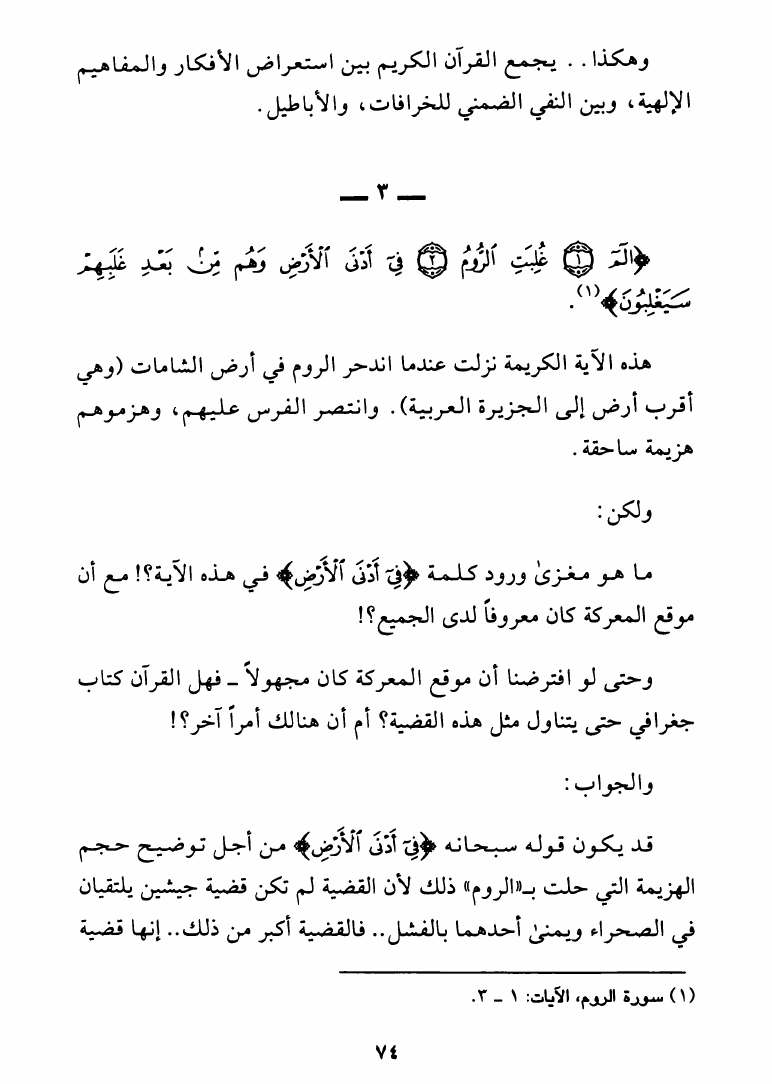 وهكذا.. يجمع القرآن الكريم بين استعراض الأفكار والمفاهيم
الإلهية، وبين النفي الضمني للخرافات، والأباطيل.
ـ ٣ ـ
﴿الٓمٓ ۝١ غُلِبَتِ ٱلرُّومُ ۝٢ فِىٓ أَدْنَى ٱلْأَرْضِ وَهُم مِّنۢ بَعْدِ غَلَبِهِمْ
سَيَغْلِبُونَ﴾(١).
هذه الآية الكريمة نزلت عندما اندحر الروم في أرض الشامات (وهي
أقرب أرض إلى الجزيرة العربية). وانتصر الفرس عليهم، وهزموهم
هزيمة ساحقة.
ولكن:
ما هو مغزىٰ ورود كلمة ﴿فِىٓ أَدْنَى ٱلْأَرْضِ﴾ في هذه الآية؟! مع أن
موقع المعركة كان معروفاً لدى الجميع؟!
وحتى لو افترضنا أن موقع المعركة كان مجهولاً ـ فهل القرآن كتاب
جغرافي حتى يتناول مثل هذه القضية؟ أم أن هنالك أمراً آخر؟!
والجواب:
قد يكون قوله سبحانه ﴿فِىٓ أَدْنَى ٱلْأَرْضِ﴾ من أجل توضيح حجم
الهزيمة التي حلت بـ«الروم» ذلك لأن القضية لم تكن قضية جيشين يلتقيان
في الصحراء ويمنىٰ أحدهما بالفشل.. فالقضية أكبر من ذلك.. إنها قضية
(١) سورة الروم، الآيات: ١ ـ ٣.
٧٤